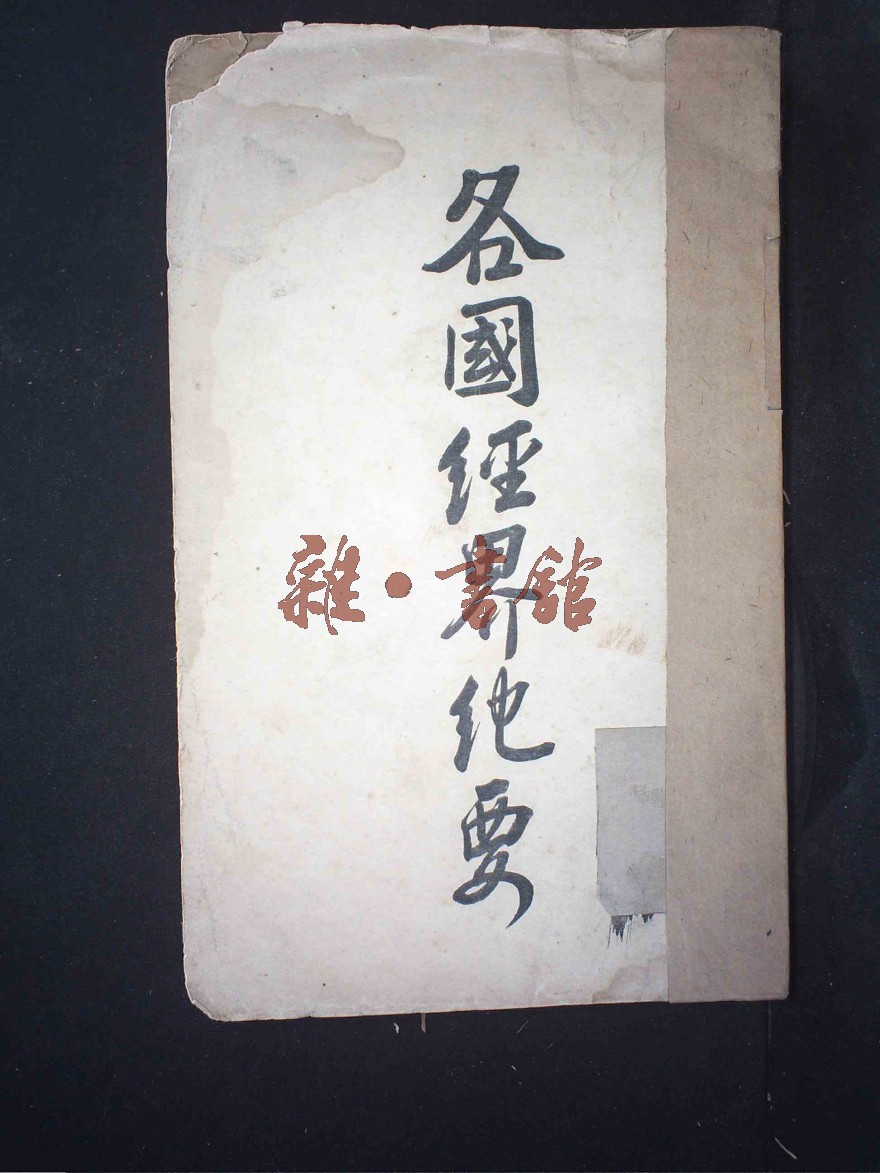 各國經界紀要
雜·書舘